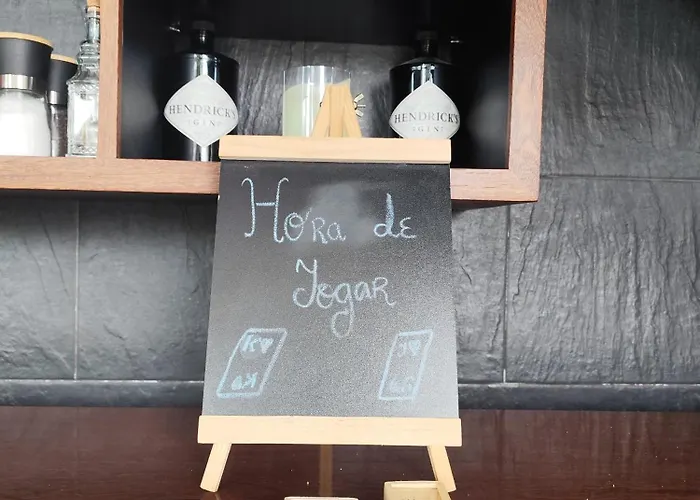 HENDRICK'S
GIN
HENDRICK'S
GIN
Hora de
Jogar
K♥
K♥
J♥
J♥